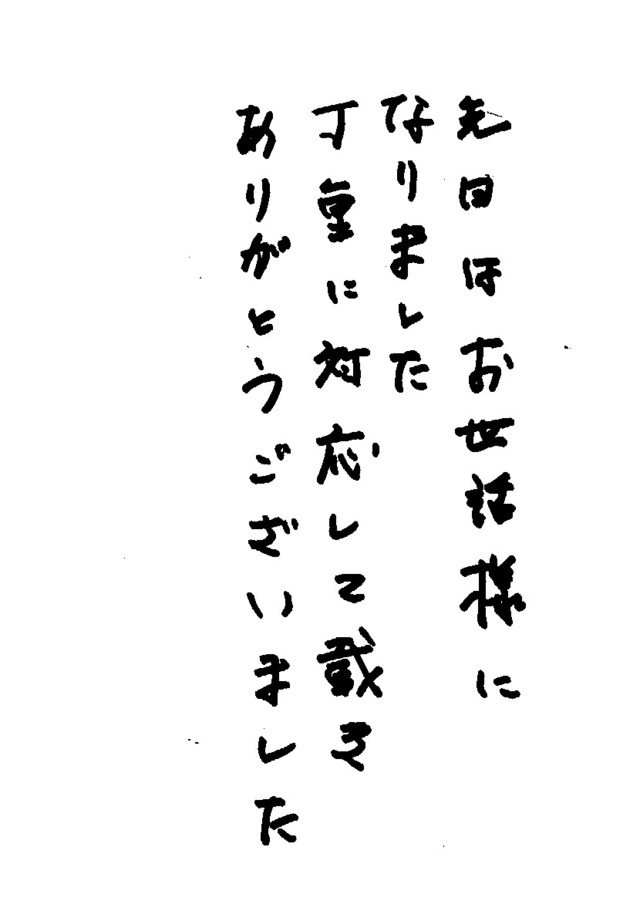 先日はお世話様に
なりました
丁重に対応して戴き
ありがとうございました